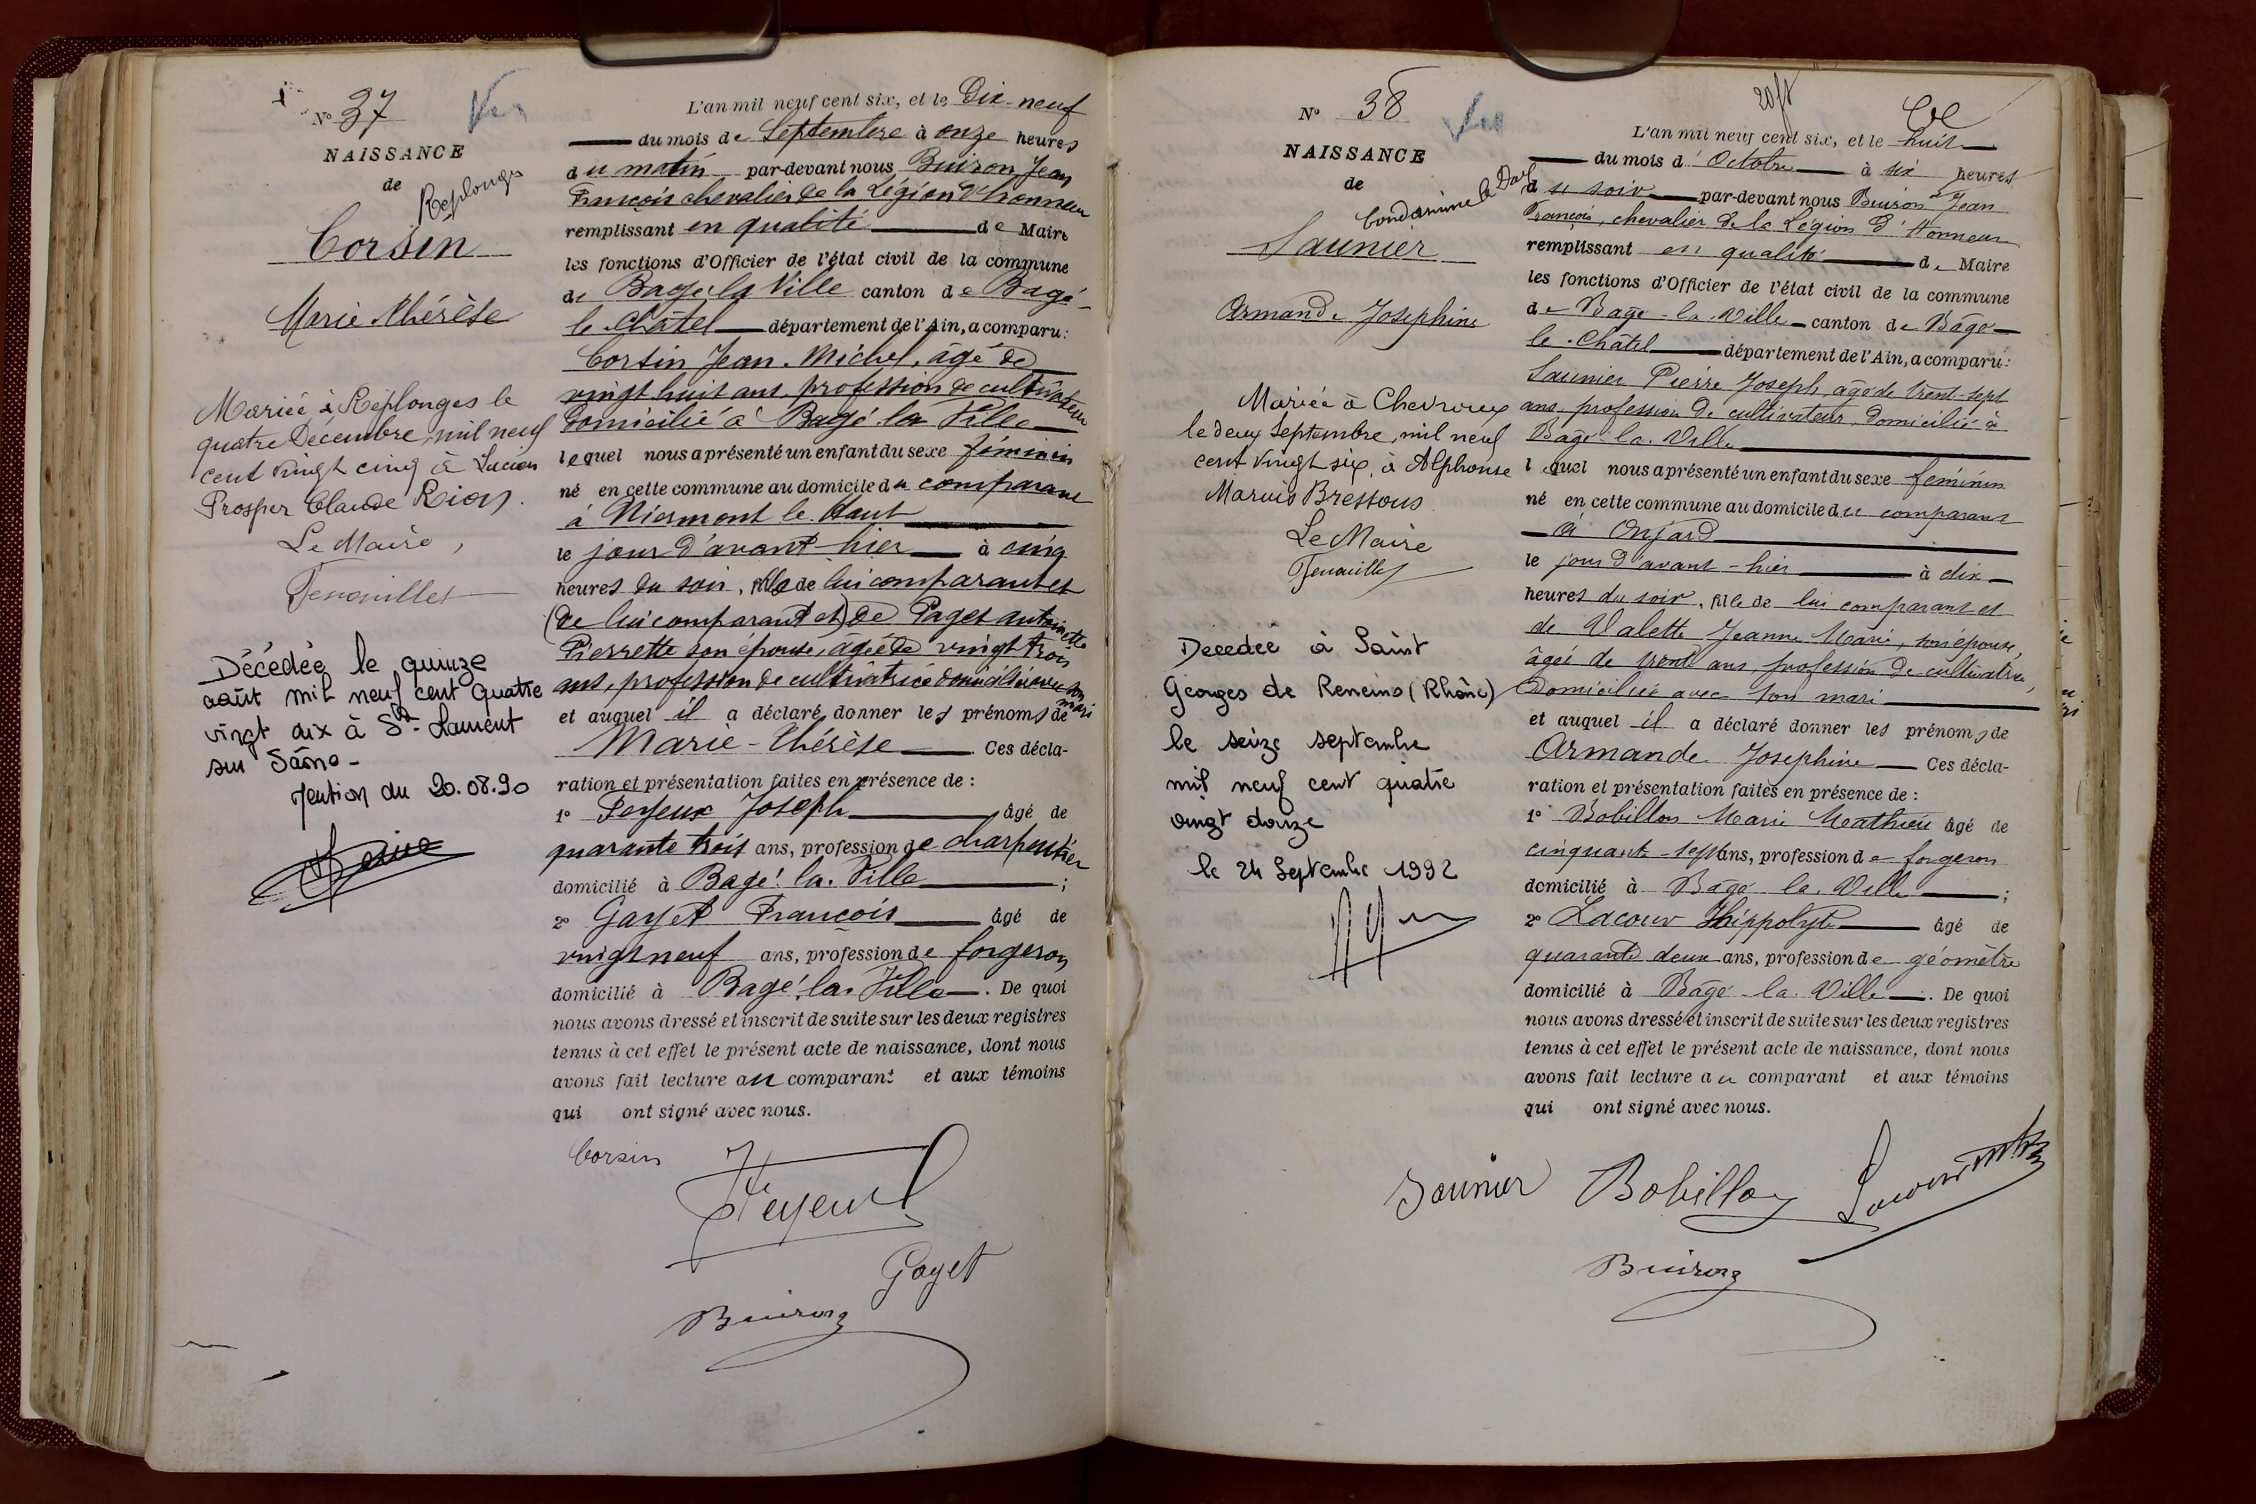 N° 37
NAISSANCE
de
Replonges
Corsin
Marie Thérèse
Mariée à Replonges le
quatre Décembre, mil neuf
cent vingt cinq à Lucien
Prosper Claude Rion.
Le Maire,
Décédée le quinze
août mil neuf cent quatre
vingt dix à St Laurent
sur Saône -
Mention du 20.08.90
L'an mil neuf cent six, et le Dix-neuf
du mois de Septembre à onze heures
du matin par-devant nous Buiron Jean
François chevalier de la Légion d'honneur
remplissant en qualité de Maire
les fonctions d'Officier de l'état civil de la commune
de Bagé la Ville canton de Bagé-
le Châtel département de l'Ain, a comparu:
Corsin Jean Michel, âgé de
vingt huit ans, profession de cultivateur
domicilié à Bagé la Ville
lequel nous a présenté un enfant du sexe féminin
né en cette commune au domicile du comparant
à Niermont le Haut
le jour d'avant-hier à cinq
heures du soir, fille de lui comparant et
(de lui comparant et) de Paget Antoinette
Pierrette son épouse, âgée de vingt trois
ans, profession de cultivatrice domiciliée avec son mari
et auquel il a déclaré donner les prénoms de
Marie-Thérèse Ces décla-
ration et présentation faites en présence de :
1° Feyeux Joseph âgé de
quarante trois ans, profession de charpentier
domicilié à Bagé la Ville ;
2° Gayet François âgé de
vingt neuf ans, profession de forgeron
domicilié à Bagé la Ville. De quoi
nous avons dressé et inscrit de suite sur les deux registres
tenus à cet effet le présent acte de naissance, dont nous
avons fait lecture au comparant et aux témoins
qui ont signé avec nous.
Corsin
Feyeux
Gayet
Buiron
N° 38
NAISSANCE
de
Saunier
Armande Josephine
Mariée à Chevroux
le deux Septembre, mil neuf
cent vingt six, à Alphonse
Marius Bressous
Le Maire
Décédée à Saint
Georges de Reneins (Rhône)
le seize septembre
mil neuf cent quatre
vingt douze
le 24 Septembre 1992
L'an mil neuf cent six, et le huit
du mois d'Octobre à six heures
du soir par-devant nous Buiron Jean
François, chevalier de la Légion d'Honneur
remplissant en qualité de Maire
les fonctions d'Officier de l'état civil de la commune
de Bagé-la-Ville canton de Bagé
le Châtel département de l'Ain, a comparu:
Saunier Pierre Joseph âgé de trente-sept
ans, profession de cultivateur, domicilié à
Bagé-la-Ville
lequel nous a présenté un enfant du sexe féminin
né en cette commune au domicile du comparant
à Onjard
le jour d'avant-hier à dix
heures du soir, fille de lui comparant et
de Valette Jeanne Marie, son épouse,
âgée de trente ans, profession de cultivatrice,
domiciliée avec son mari
et auquel il a déclaré donner les prénoms de
Armande Josephine Ces décla-
ration et présentation faites en présence de :
1° Bobillon Marie Mathieu âgé de
cinquante-sept ans, profession de forgeron
domicilié à Bagé la Ville ;
2° Lacour Hippolyte âgé de
quarante deux ans, profession de géomètre
domicilié à Bagé-la-Ville. De quoi
nous avons dressé et inscrit de suite sur les deux registres
tenus à cet effet le présent acte de naissance, dont nous
avons fait lecture au comparant et aux témoins
qui ont signé avec nous.
Saunier Bobillon Lacour
Buiron